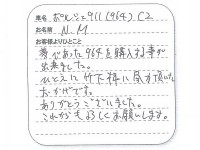 車名 ポルシェ911(964) C2
お名前 N.M
お客様よりひとこと
夢であった964を購入する事が
出来ました。
ひとえに竹下様に尽す頂いた
おかげです。
ありがとうございました。
これからもよろしくお願いします。